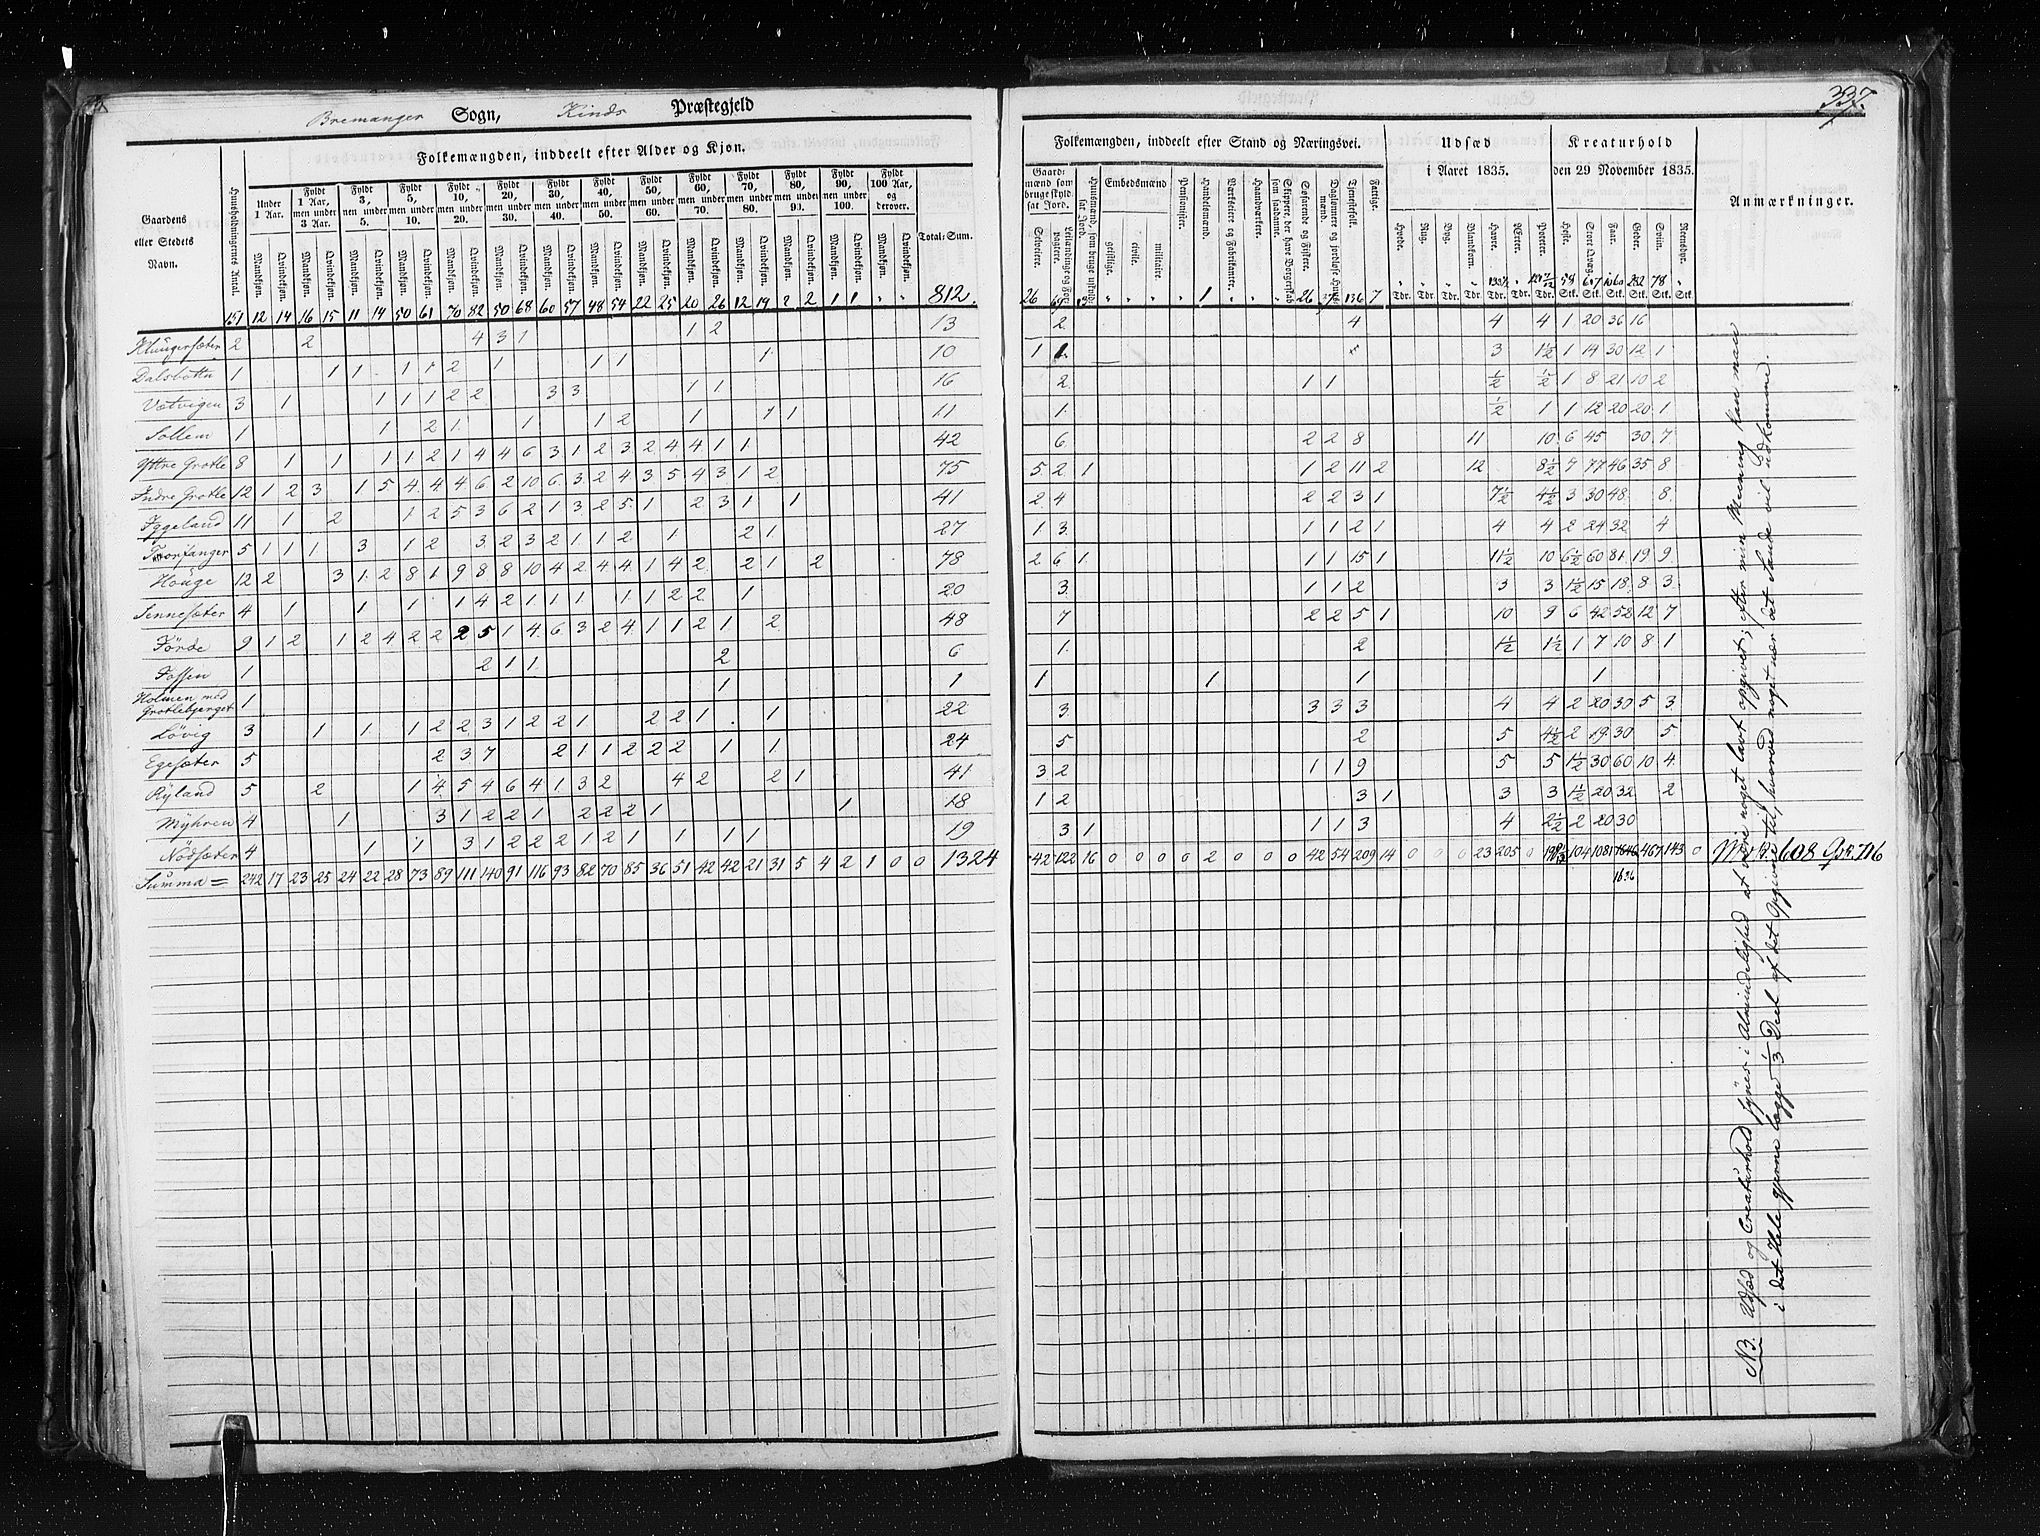 337.
Bremanger Sogn, Kinds Præstegjeld
Gaardens eller Stedets Navn.
Huusholdningernes Antal.
Folkemængden, inddeelt efter Alder og Kjøn.
Under 1 Aar.
Fyldt 1 Aar, men under 3 Aar.
Fyldt 3, men under 5.
Fyldt 5, men under 10.
Fyldt 10, men under 20.
Fyldt 20, men under 30.
Fyldt 30, men under 40.
Fyldt 40, men under 50.
Fyldt 50, men under 60.
Fyldt 60, men under 70.
Fyldt 70, men under 80.
Fyldt 80, men under 90.
Fyldt 90, men under 100.
Fyldt 100 Aar, og derover.
Mandkjøn. Qvindekjøn.
Total-Sum.
151 12 14 16 15 11 14 50 61 70 82 50 68 60 57 48 54 22 25 20 26 12 19 2 2 1 1 " " 812.
Klungersæter 2 2 4 3 1 1 2 13
Dalsbotn 1 1 1 1 1 2 1 1 1 1 10
Vætvigen 3 1 1 1 1 2 2 3 3 1 1 16
Sollem 1 1 2 1 1 1 2 1 1 1 11
Yttre Grotle 8 1 1 1 1 2 1 4 4 6 3 1 2 3 2 4 4 1 1 42
Indre Grotle 12 1 2 3 1 5 4 4 4 6 2 10 6 3 2 4 3 5 4 3 1 2 75
Iggeland 11 1 2 1 2 5 3 6 2 1 3 2 5 1 2 3 1 1 41
Torfanger 5 1 1 1 3 1 2 3 2 3 2 1 1 2 1 2 1 27
Houge 12 2 3 1 2 8 1 9 8 8 10 4 2 4 4 1 4 2 2 1 2 78
Sennesæter 4 1 1 1 1 4 2 1 1 1 1 1 2 2 1 20
Förde 9 1 2 1 2 4 2 2 2 5 1 4 6 3 2 4 1 1 2 1 2 48
Fossen 1 2 1 1 2 6
Holmen ned Grotlebjerget 1 1 1
Lövig 3 1 1 1 2 2 3 1 2 2 1 2 2 1 1 22
Egesæter 5 2 3 7 2 1 1 2 2 2 1 1 24
Ryland 5 2 1 4 5 4 6 4 1 3 2 4 2 2 1 41
Myhren 4 1 3 1 2 2 1 2 2 2 1 1 18
Nödsæter 4 1 1 3 1 2 2 2 1 2 1 1 1 1 19
Summa = 242 17 23 25 24 22 28 73 89 111 140 91 116 93 82 70 85 36 51 42 42 21 31 5 4 2 1 0 0 1324
Folkemængden, inddeelt efter Stand og Næringsvei.
Gaardmænd som bruge skyldsat Jord.
Selveiere.
Huusmænd, som bruge usat Jord.
Embedsmænd
geistlige. civile. militaire.
Pensionister.
Handelsmænd.
Værkeiere og Fabrikanter.
Haandværkere.
Skippere, der have Borgerskab som saadanne.
Søfarende og Fiskere.
Tjenestefolk.
Fattige.
Udsæd i Aaret 1835.
Hvede. Rug. Byg. Blandkorn. Havre. Ærter. Poteter.
Kreaturhold den 29 November 1835.
Heste. Stort Qvæg. Faar. Geder. Sviin. Reensdyr.
Anmærkninger.
Tdr. Stk.
2 4 4 4 1 20 36 16
1 1 3 1½ 1 14 30 12 1
2 1 1 ½ ½ 1 8 21 10 2
1 ½ 1 1 12 20 20 1
6 2 2 8 11 10 6 45 30 7
5 2 1 1 2 11 2 12 8½ 7 77 46 35 8
2 4 2 2 3 1 7½ 4½ 3 30 48 8
1 3 1 1 2 1 4 4 2 24 32 4
2 6 1 1 1 15 1 11½ 10 6½ 60 81 19 9
3 1 1 2 3 3 1½ 15 18 8 3
7 2 2 5 1 10 9 6 42 52 12 7
1 2 1½ 1½ 1 7 10 8 1
1 1 1 1
3 3 3 3 4 4 2 20 30 5 3
5 2 5 4½ 2 19 30 5
3 2 1 1 9 5 5 1½ 30 60 10 4
1 2 3 1 3 3 1½ 20 32 2
3 1 1 1 3 4 2½ 2 20 30
42 122 16 0 0 0 0 2 0 0 0 42 54 209 14 0 0 0 23 205 0 104 1081 1646 467 143 0 608 716
1636
NB. Udsæd og Creaturhold synes i Almindelighed at være noget lavt opgivet; efter min Meening kan man
i det Hele gjerne lægge ⅓ Deel af det Opgivne til, hvorved noget nær det Sande vil udkomme.